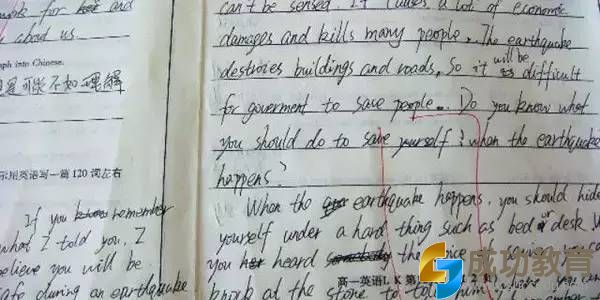 and
about us
ph into Chinese.
是可能不如理解
示用英语写一篇 120 词左右
If you remember
what I told you, I
believe you will be
safe during an earthquake
can't be sensed. It causes a lot of economic
damages and kills many people. The earthquake
destroies buildings and roads. So it will be difficult
for goverment to save people. Do you know what
you should do to save yourself? when the earthquake
happens?
When the earthquake happens, you should hide
yourself under a hard thing such as bed or desk
you heard the
高一英语L K 第
knock at the stone to
成功教育